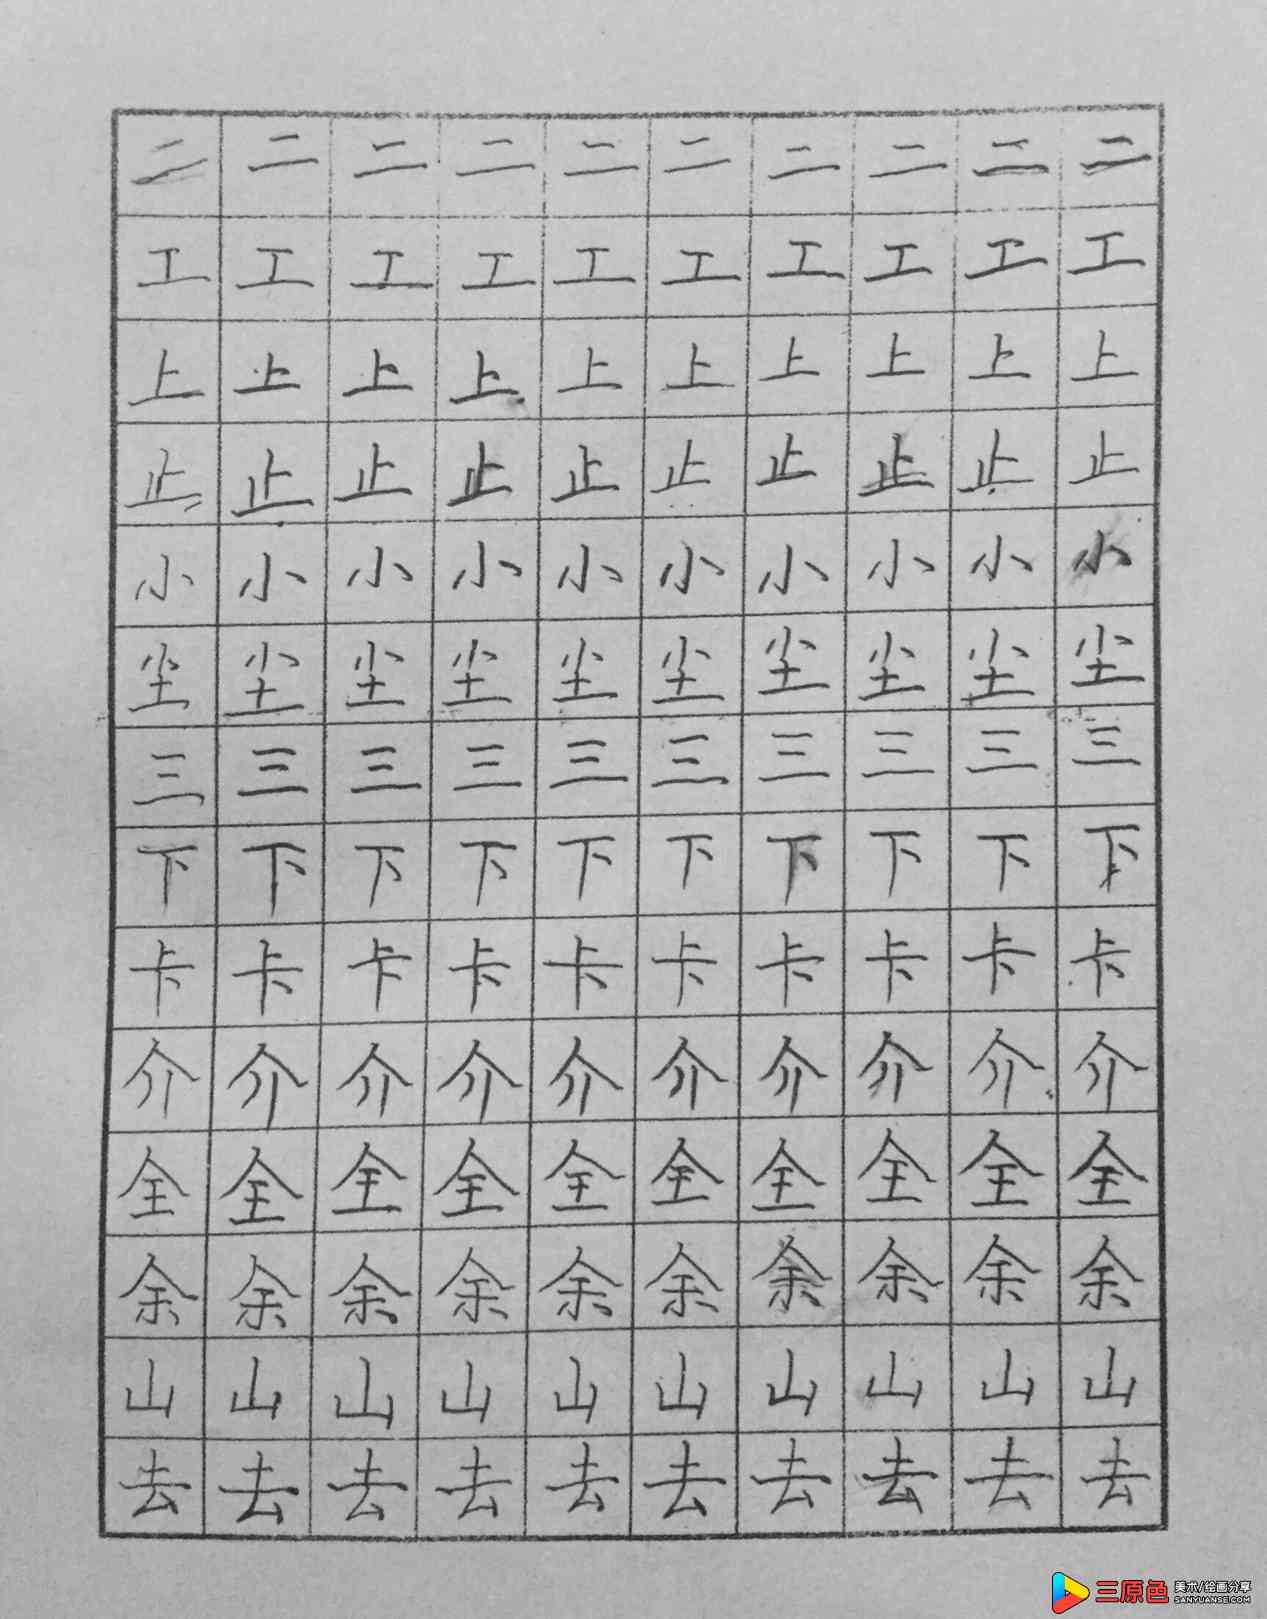 二二二二二二二二二二
工工工工工工工工工工
上上上上上上上上上上
止止止止止止止止止止
小小小小小小小小小小
尘尘尘尘尘尘尘尘尘尘
三三三三三三三三三三
下下下下下下下下下下
卡卡卡卡卡卡卡卡卡卡
介介介介介介介介介介
全全全全全全全全全全
余余余余余余余余余余
山山山山山山山山山山
去去去去去去去去去去
三原色 美术/绘画分享
SANYUANSE.COM